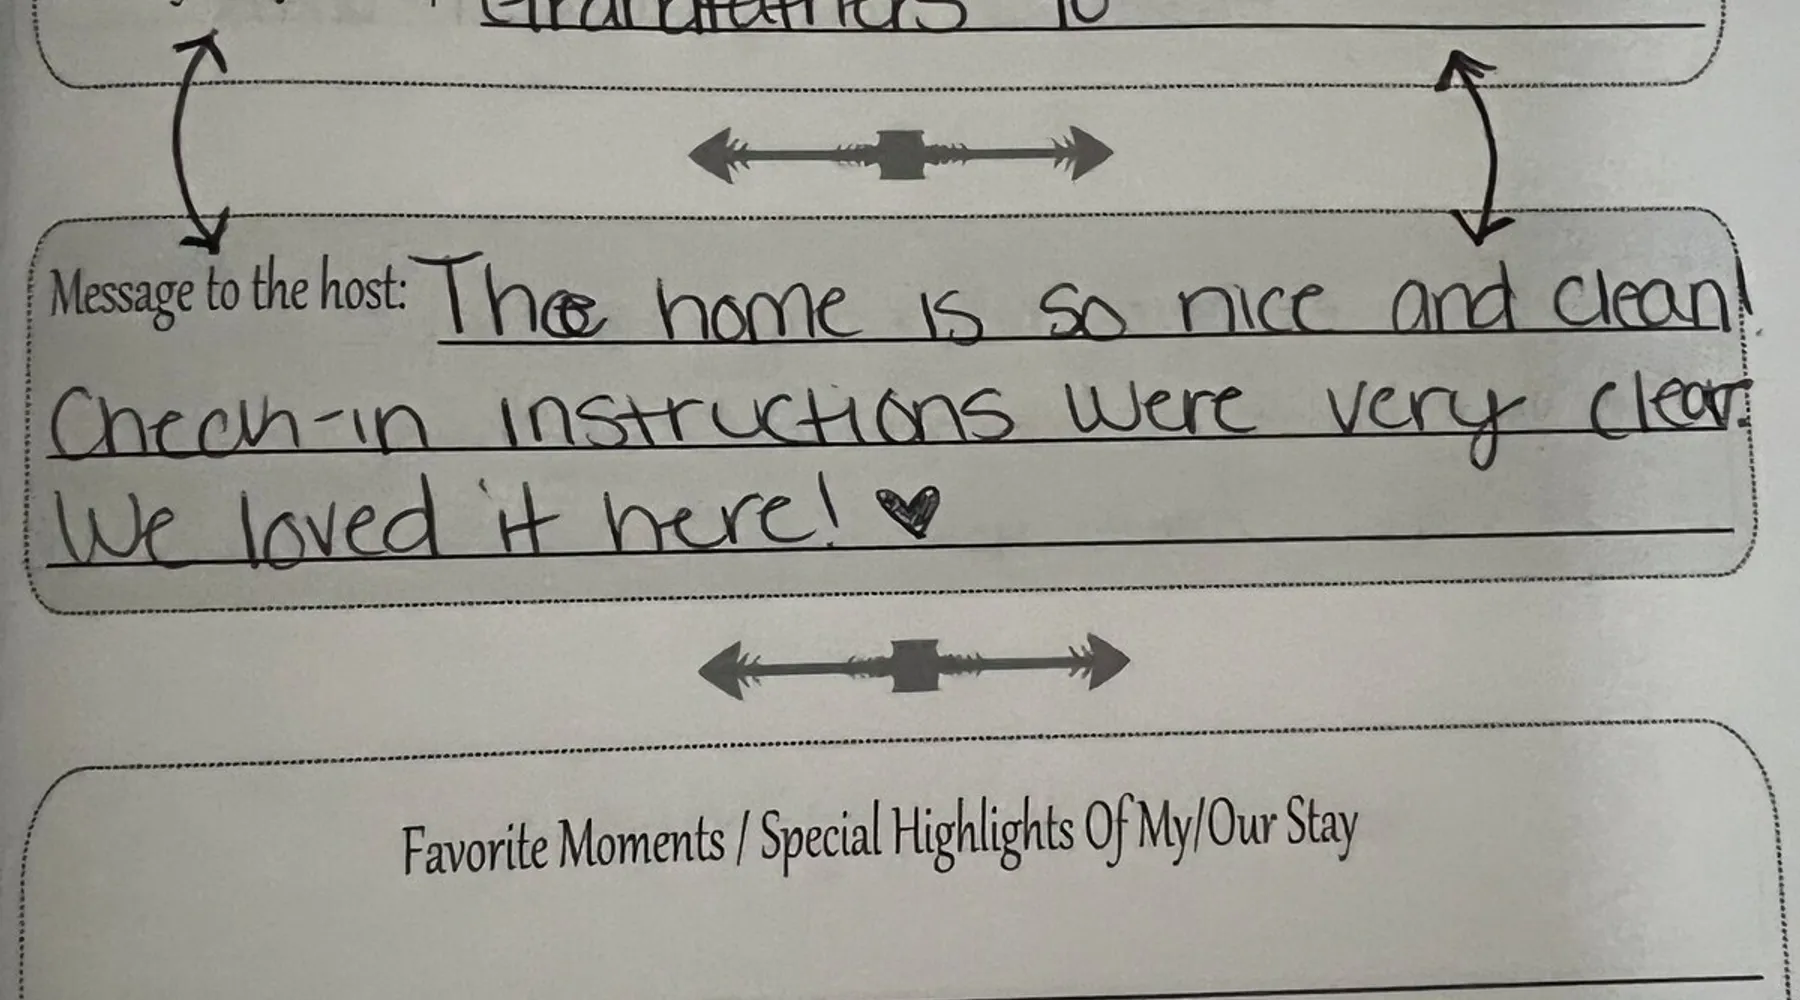 Message to the host: The home is so nice and clean!
Check-in instructions were very clear.
We loved it here! ♥
Favorite Moments / Special Highlights Of My/Our Stay